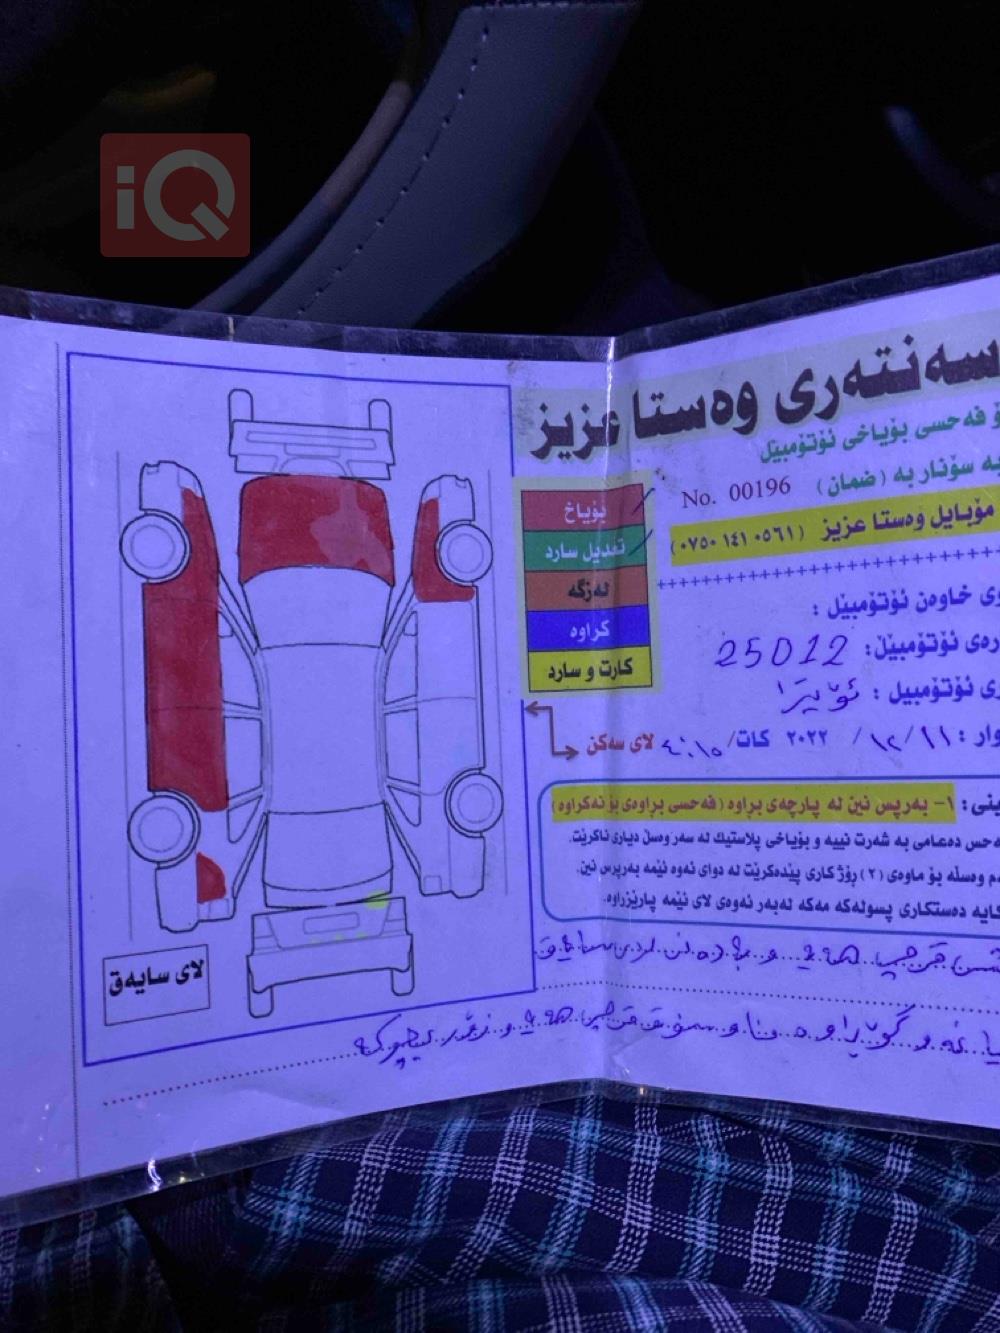 iQ
سەنتەری وەستا عزیز
فەحسی بۆیاخی ئۆتۆمبێل
بە سۆنار بە (ضمان)
No. 00196
مۆبایل وەستا عزیز (٠٧٥٠ ١٤١ ٠٥٦١)
بۆیاخ
تعدیل سارد
لەزگە
کراوە
کارت و سارد
خاوەن ئۆتۆمبێل :
ئۆتۆمبێل: 25012
ئۆتۆمبیل :
١١/١٢/ ٢٠٢٢ کات/
لای سەکن
١- بەرپس نین لە پارچەی براوە (فەحسی براوەی بۆ نەکراوە)
دەعامی بە شەرت نییە و بۆیاخی پلاستیك لە سەر وەسڵ دیاری ناکرێت.
وەسڵە بۆ ماوەی (٢) ڕۆژ کاری پێدەکرێت لە دوای ئەوە ئێمە بەرپرس نین.
دەستکاری پسولەکە مەکە لەبەر ئەوەی لای ئێمە پارێزراوە.
لای سایەق